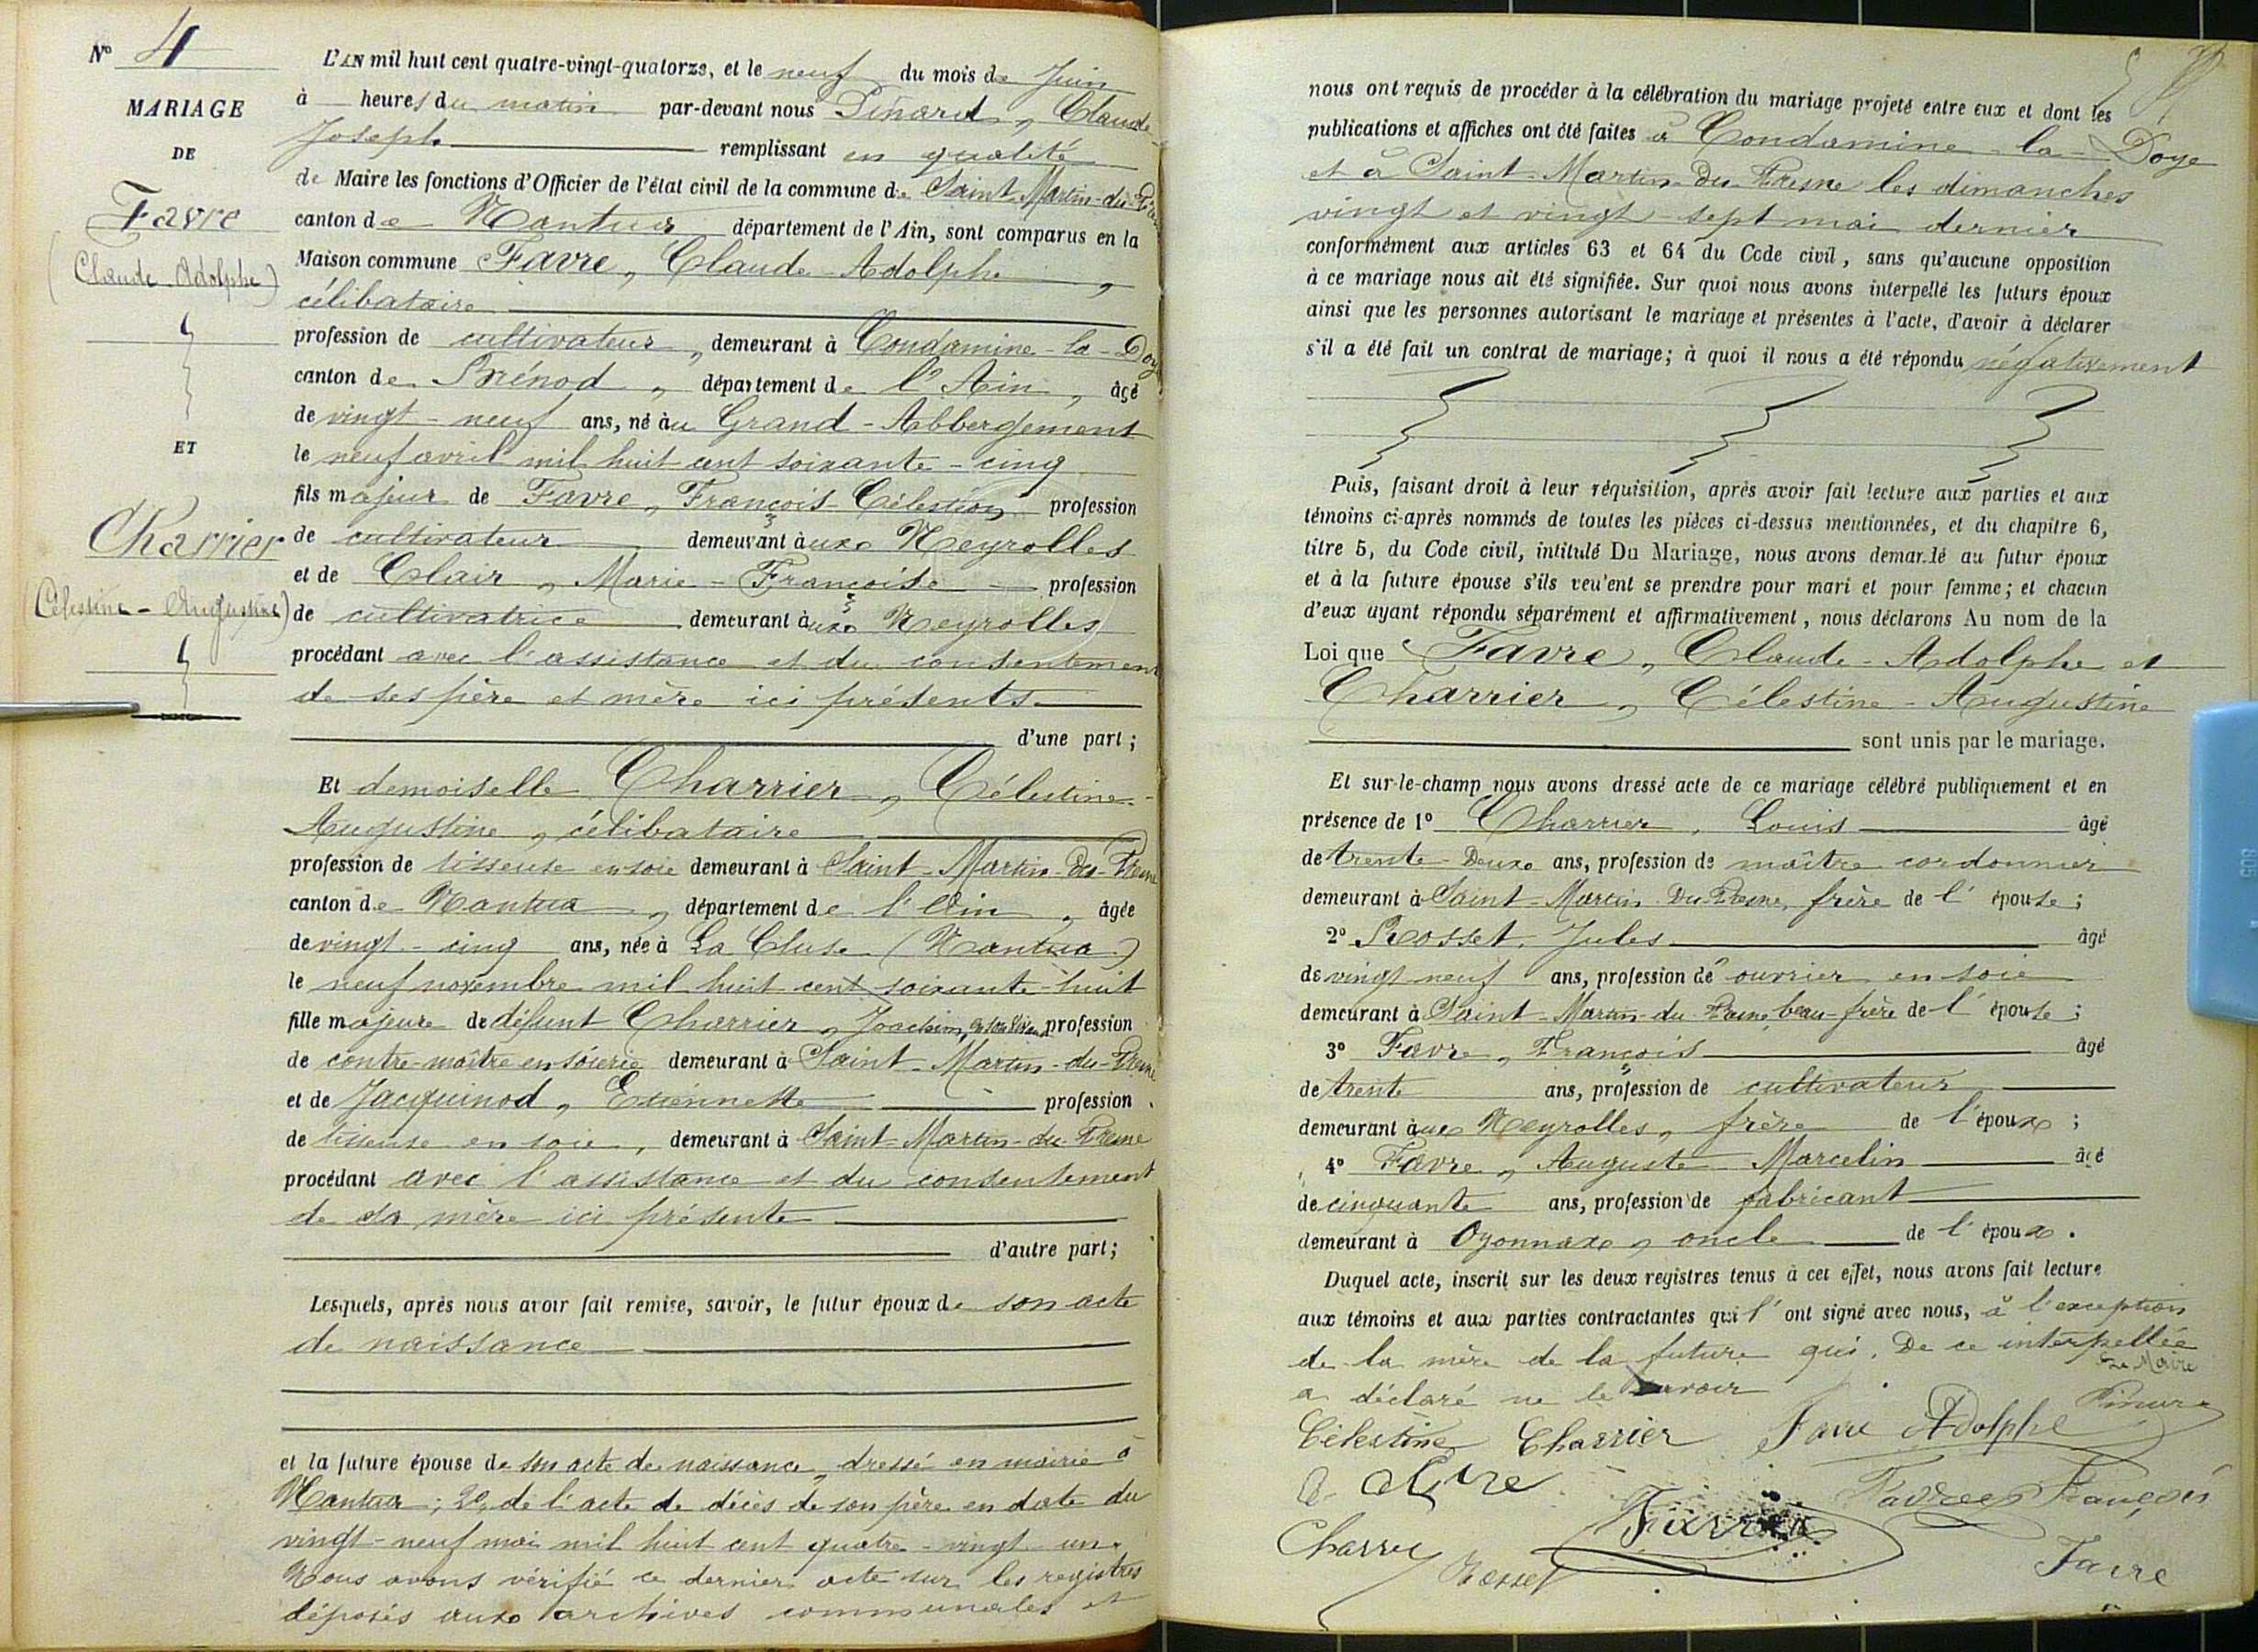 N° 4
MARIAGE
DE
Favre
(Claude Adolphe)
ET
Charrier
(Célestine-Augustine)
L'AN mil huit cent quatre-vingt-quatorze, et le neuf du mois de Juin
à heures du matin par-devant nous Pinard, Claude
Joseph remplissant en qualité
de Maire les fonctions d'Officier de l'état civil de la commune de Saint-Martin-du-Fresne
canton de Nantua département de l'Ain, sont comparus en la
Maison commune Favre, Claude-Adolphe,
célibataire
profession de cultivateur, demeurant à Condamine-la-Doye
canton de Brénod, département de l'Ain, âgé
de vingt-neuf ans, né au Grand-Abbergement
le neuf avril mil huit cent soixante-cinq
fils majeur de Favre, François-Célestion profession
de cultivateur demeurant aux Neyrolles
et de Clair, Marie-Françoise profession
de cultivatrice demeurant aux Neyrolles
procédant avec l'assistance et du consentement
de ses père et mère ici présents.
d'une part;
Et demoiselle Charrier, Célestine-
Augustine, célibataire
profession de tisseuse en soie demeurant à Saint-Martin-du-Fresne
canton de Nantua, département de l'Ain, âgée
de vingt-cinq ans, née à La Cluse (Nantua)
le neuf novembre mil huit cent soixante-huit
fille majeure de défunt Charrier, Joachim, en son vivant profession
de contre-maître en soierie demeurant à Saint-Martin-du-Fresne
et de Jacquinod, Etiennette profession
de tisseuse en soie, demeurant à Saint-Martin-du-Fresne
procédant avec l'assistance et du consentement
de sa mère ici présente
d'autre part;
Lesquels, après nous avoir fait remise, savoir, le futur époux de son acte
de naissance
et la future épouse de son acte de naissance, dressé en mairie à
Nantua; 2° de l'acte de décès de son père en date du
vingt-neuf mai mil huit cent quatre-vingt-un.
Nous avons vérifié ce dernier acte sur les registres
déposés aux archives communales et
nous ont requis de procéder à la célébration du mariage projeté entre eux et dont les
publications et affiches ont été faites à Condamine-la-Doye
et à Saint-Martin-du-Fresne les dimanches
vingt et vingt-sept mai dernier
conformément aux articles 63 et 64 du Code civil, sans qu'aucune opposition
à ce mariage nous ait été signifiée. Sur quoi nous avons interpellé les futurs époux
ainsi que les personnes autorisant le mariage et présentes à l'acte, d'avoir à déclarer
s'il a été fait un contrat de mariage; à quoi il nous a été répondu négativement
Puis, faisant droit à leur réquisition, après avoir fait lecture aux parties et aux
témoins ci-après nommés de toutes les pièces ci-dessus mentionnées, et du chapitre 6,
titre 5, du Code civil, intitulé Du Mariage, nous avons demandé au futur époux
et à la future épouse s'ils veulent se prendre pour mari et pour femme; et chacun
d'eux ayant répondu séparément et affirmativement, nous déclarons Au nom de la
Loi que Favre, Claude-Adolphe et
Charrier, Célestine-Augustine
sont unis par le mariage.
Et sur-le-champ nous avons dressé acte de ce mariage célébré publiquement et en
présence de 1° Charrier, Louis âgé
de trente-deux ans, profession de maître cordonnier
demeurant à Saint-Martin-du-Fresne, frère de l'épouse;
2° Rosset, Jules âgé
de vingt neuf ans, profession de ouvrier en soie
demeurant à Saint-Martin-du-Fresne, beau-frère de l'épouse;
3° Favre, François âgé
de trente ans, profession de cultivateur
demeurant aux Neyrolles, frère de l'époux;
4° Favre, Auguste Marcelin âgé
de cinquante ans, profession de fabricant
demeurant à Oyonnax, oncle de l'époux.
Duquel acte, inscrit sur les deux registres tenus à cet effet, nous avons fait lecture
aux témoins et aux parties contractantes qui l'ont signé avec nous, à l'exception
de la mère de la future qui, de ce interpellée
a déclaré ne le savoir
Le Maire
Pinard
Célestine Charrier Favre Adolphe
Favre François
Favre
Charrier Rosset
Favre
805